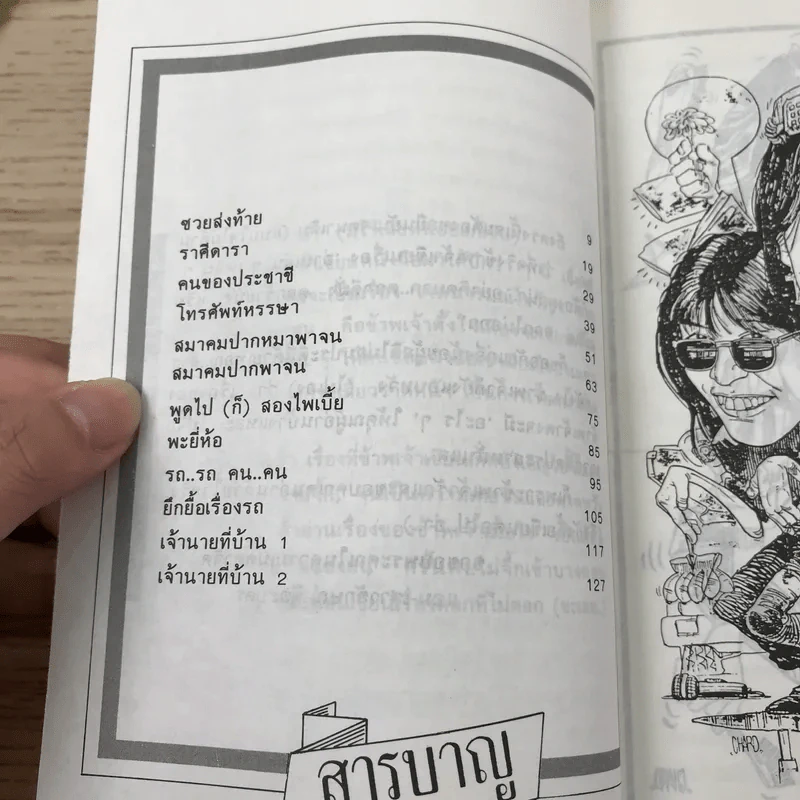 ซวยส่งท้าย 9
ราศีดารา 19
คนของประชาชี 29
โทรศัพท์หรรษา 39
สมาคมปากหมาพาจน 51
สมาคมปากพาจน 63
พูดไป (ก็) สองไพเบี้ย 75
พะยี่ห้อ 85
รถ..รถ คน..คน 95
ยึกยื้อเรื่องรถ 105
เจ้านายที่บ้าน 1 117
เจ้านายที่บ้าน 2 127
สารบาญ
CHARD.